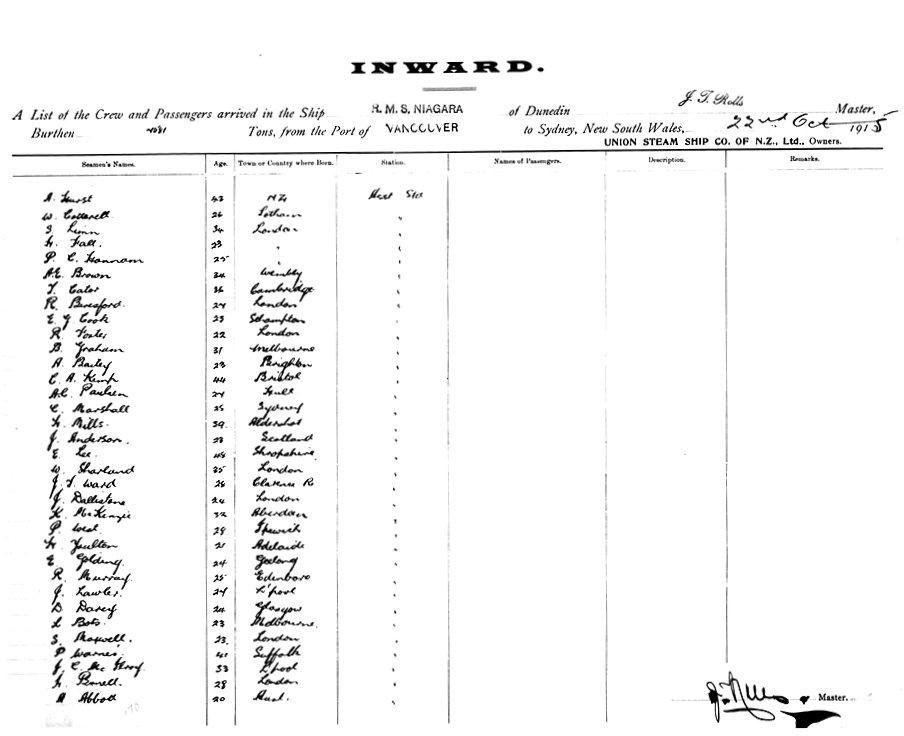 INWARD.
A List of the Crew and Passengers arrived in the Ship R. M. S. NIAGARA of Dunedin J. T. Rolls Master,
Burthen Tons, from the Port of VANCOUVER to Sydney, New South Wales, 22nd Oct 1915
UNION STEAM SHIP CO. OF N.Z., Ltd., Owners.
Seamen's Names. Age. Town or Country where Born. Station. Names of Passengers. Description. Remarks.
A. Hurst 42 NZ
W. Cotterell 26
S. Linn 34 London "
H. Hall 23 " "
P. C. Hannam 25 " "
A.E. Brown 34 Wembly "
T. Cater 36 Cambridge "
R. Beresford 24 London "
E. G Cook 23 Sthampton "
R. Foster 22 London "
B. Graham 31 Melbourne "
A. Bailey 23 Brighton "
C. A. Kemp 44 Bristol "
A.C. Paulsen 24 Hull "
C. Marshall 25 Sydney "
H. Mills 39. Aldershot "
J. Anderson. 23 Scotland "
E. Lee 48 Shropshire "
W. Sharland 35 London "
J. T. Ward 26 Clarence R "
J. Dallistone 24 London "
K. McKenzie 32 Aberdeen "
P. West 29 Ipswich "
H. Foulton 21 Adelaide "
E Golding. 24 Geelong "
R. Murray. 25 Edenboro "
J. Lawler. 24 L'pool "
D. Darcy 24 Glasgow "
L Bots. 23 Melbourne. "
S. Maxwell. 23. London "
P Warnes. 41 Suffolk "
J. C. 33 L'pool "
H. Pennell. 28 London "
A Abbott 20 "
Master.